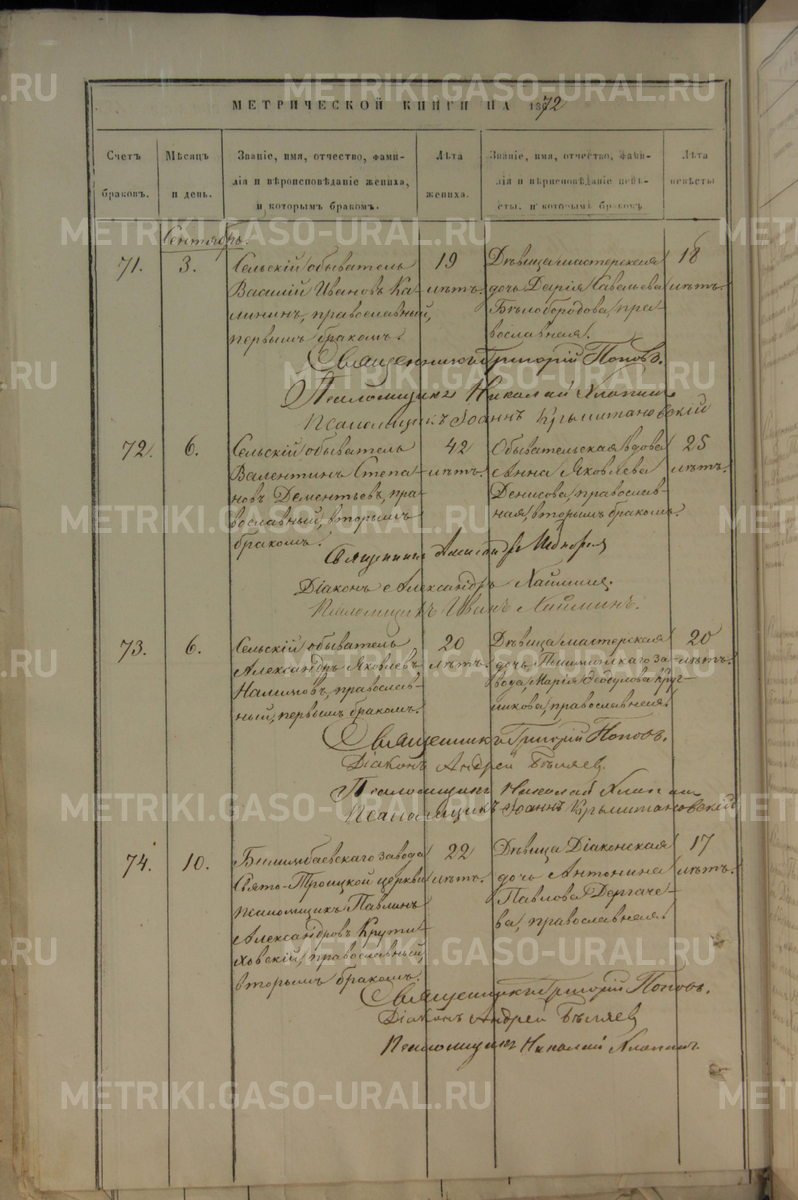 МЕТРИЧЕСКОЙ КНИГИ НА 1872
Счетъ браковъ.
Мѣсяцъ и день.
Званіе, имя, отчество, фами-
лія и вѣроисповѣданіе жениха,
и которымъ бракомъ.
Лѣта жениха.
Званіе, имя, отчество, фами-
лія и вѣроисповѣданіе невѣ-
сты, и которымъ бракомъ.
Лѣта невѣсты
Сентябрь.
71. 3.
Сельскій обыватель
Василій Ивановъ Ка-
линин, православный,
первымъ бракомъ.
19 лѣтъ.
Дѣвица мастерская
дочь Дарія Савельева
Бѣлобородова, пра-
вославная.
18 лѣтъ.
Священникъ Григорій Поповъ.
Псаломщикъ Николай Хлопин
Псаломщикъ Іоаннъ
72. 6.
Сельскій обыватель
Валентинъ Степа-
новъ Дементьевъ, пра-
вославный, вторымъ
бракомъ.
42 лѣтъ.
Обывательская вдова
Анна Яковлева
Денисова, православ-
ная, вторымъ бракомъ.
25 лѣтъ.
Священникъ
Діаконъ Александръ
Псаломщикъ Иванъ
73. 6.
Сельскій обыватель
Александръ Яковлевъ
Налимовъ, православ-
ный, первымъ бракомъ.
20 лѣтъ.
Дѣвица мастерская
дочь, Пышминскаго за-
вода, Марія Ѳедулова Круг-
ликова, православная.
20 лѣтъ.
Священникъ Григорій Поповъ.
Діаконъ Андрей Бѣляев
Псаломщикъ Николай Хлопин
Псаломщикъ Іоаннъ
74. 10.
Билимбаевскаго завода
Свято-Троицкой церкви
псаломщикъ Павлинъ
Александровъ Крути-
ховскій, православный,
вторымъ бракомъ.
22 лѣтъ.
Дѣвица Діаконская
дочь Антонина
Павлова Дергаче-
ва, православная.
17 лѣтъ.
Священникъ Григорій Поповъ.
Діаконъ Андрей Бѣляев
Псаломщикъ Николай Хлопин
METRIKI.GASO-URAL.RU
METRIKI.GASO-URAL.RU
METRIKI.GASO-URAL.RU
METRIKI.GASO-URAL.RU
METRIKI.GASO-URAL.RU
METRIKI.GASO-URAL.RU
METRIKI.GASO-URAL.RU
METRIKI.GASO-URAL.RU